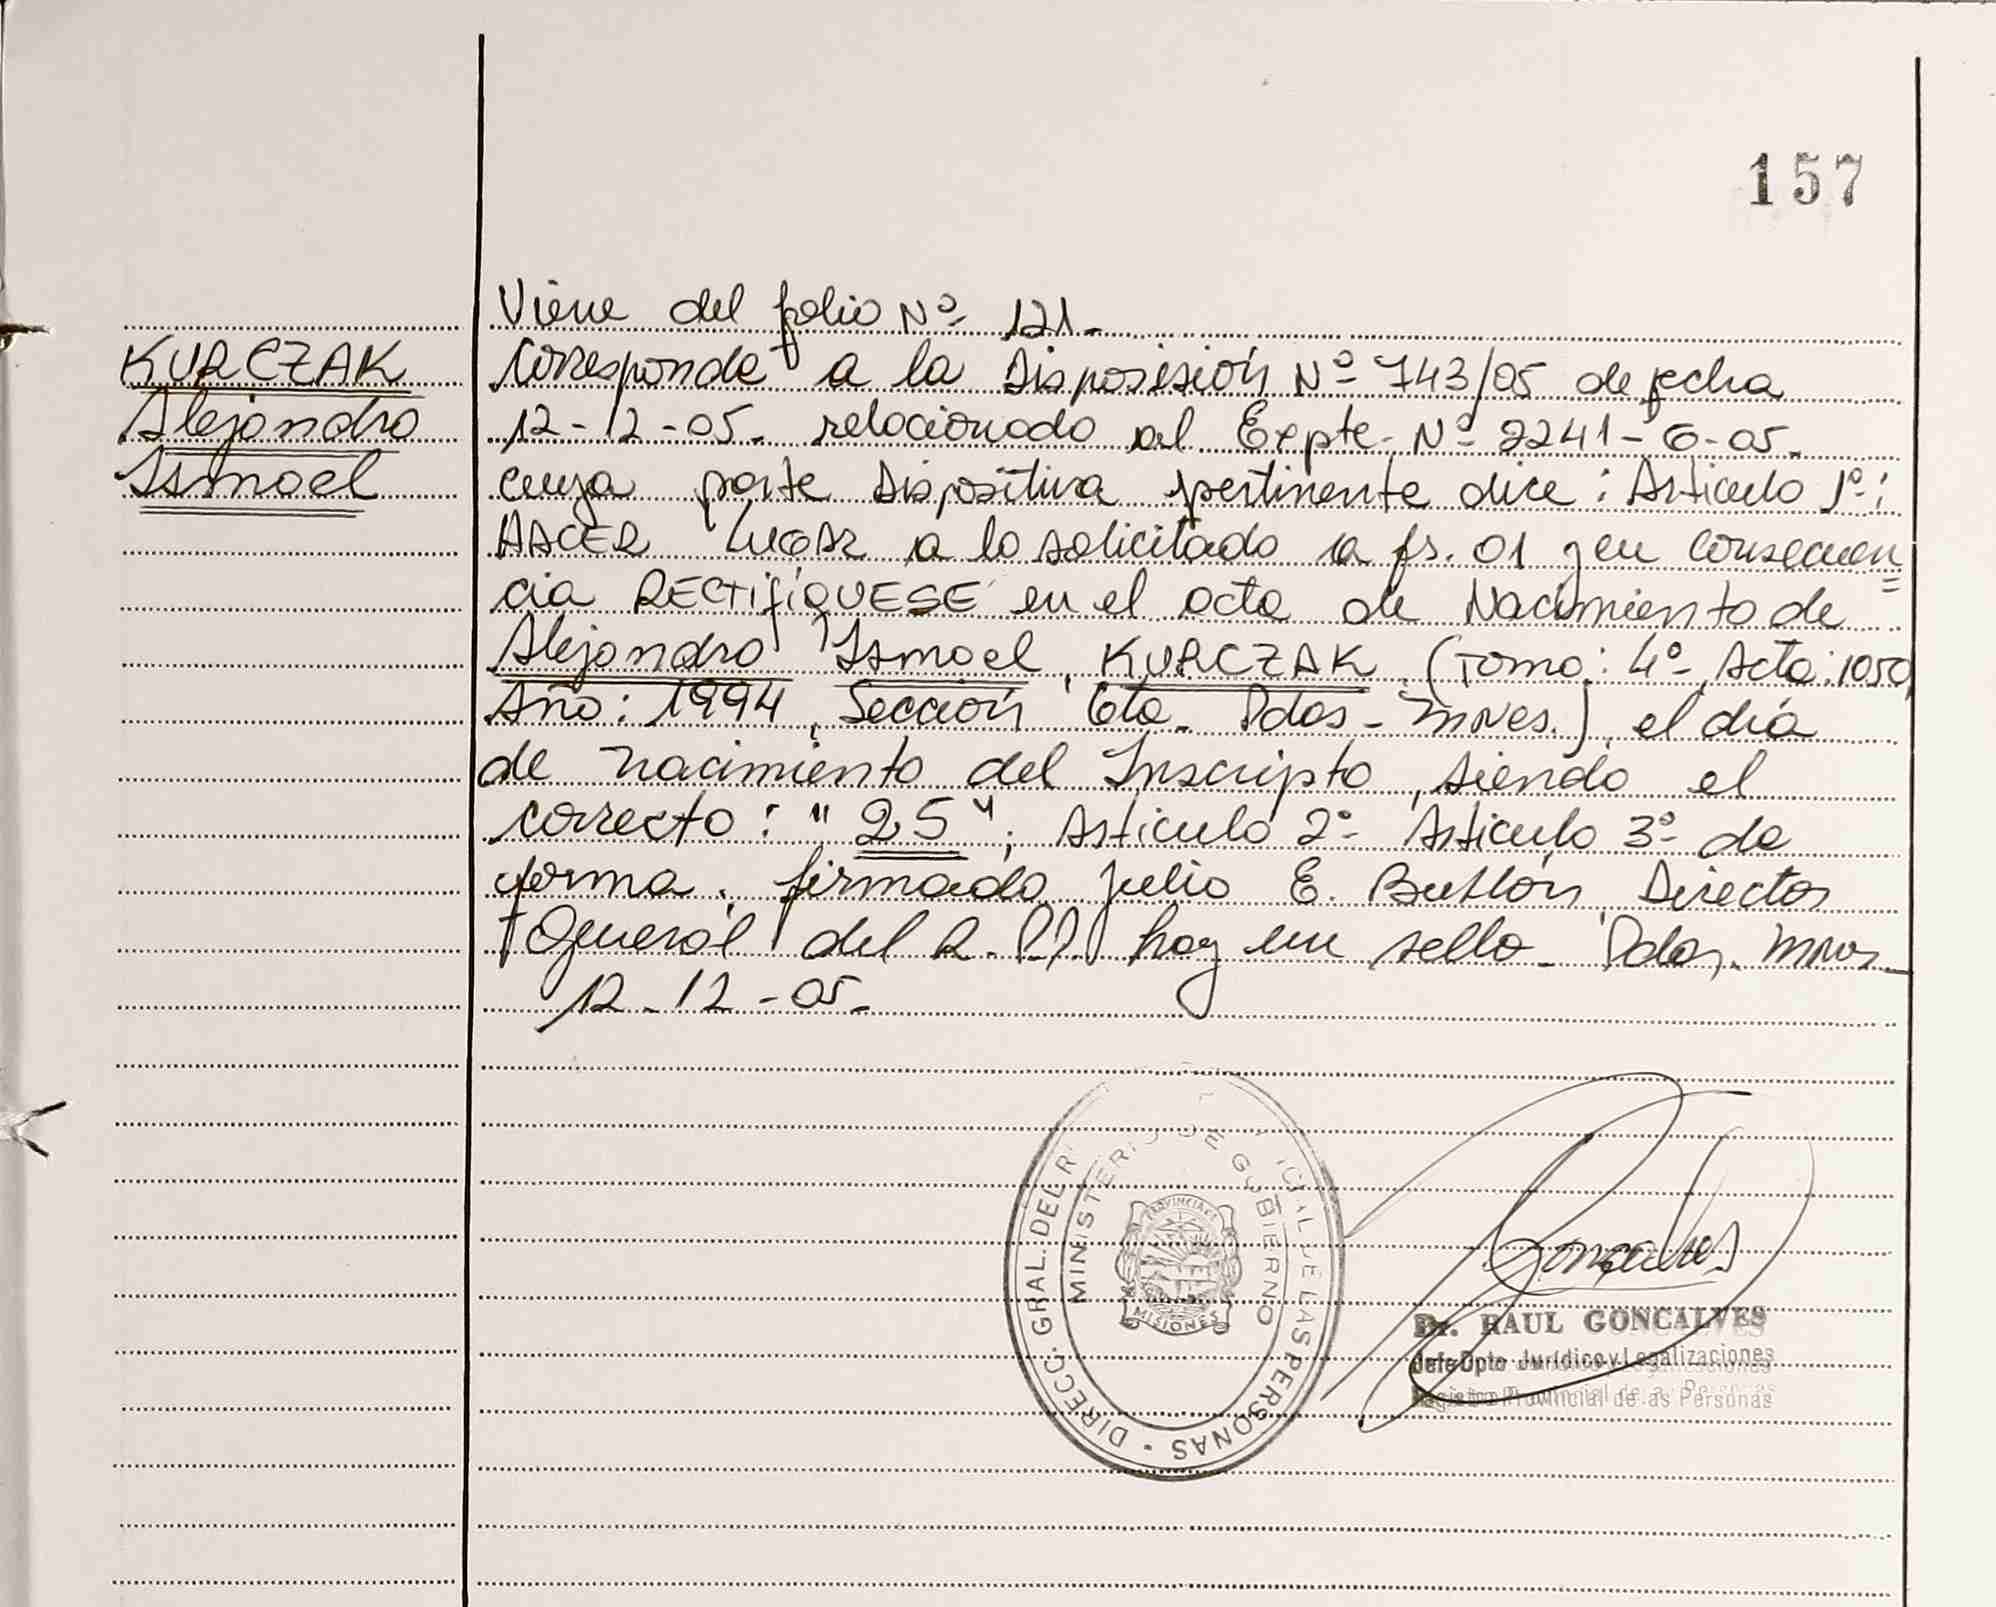 157
Viene del folio Nº 121.-
KURCZAK
Alejandro
Ismael
Corresponde a la Disposisión Nº 743/05 de fecha
12-12-05. relacionado al Expte. Nº 2241-G-05.
cuya parte Dispositiva pertinente dice: Articulo 1º:
HACER LUGAR a lo solicitado a fs. 01 y en consecuen
cia RECTIFÍQUESE en el acta de Nacimiento de
Alejandro Ismael KURCZAK (Tomo: 4º Acta: 1050,
Año: 1994, Sección 6ta. Pdas-Mnes.), el día
de nacimiento del Inscripto, siendo el
correcto: "25"; Articulo 2º- Articulo 3º de
forma. firmado Julio E. Director
General del R.P.P. hay un sello. Pdas. Mnes.
12-12-05.-
DIRECC. GRAL. DEL R LAS PERSONAS
MINISTERIO DE GOBIERNO
PROVINCIA DE
MISIONES
Goncalves
Dr. RAUL GONCALVES
Jefe Dpto Jurídico y Legalizaciones
Registro Provincial de as Personas